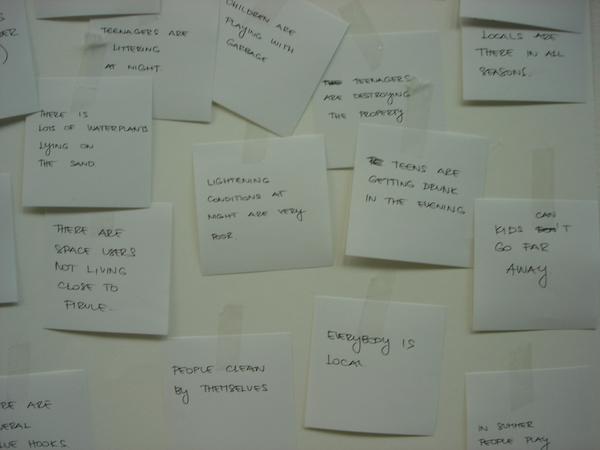 TEENAGERS ARE
LITTERING
AT NIGHT.
CHILDREN ARE
PLAYING WITH
GARBAGE
TEENAGERS
ARE DESTROYING
THE PROPERTY
LOCALS ARE
THERE IN ALL
SEASONS.
THERE IS
LOTS OF WATERPLANTS
LYING ON
THE SAND
LIGHTENING
CONDITIONS AT
NIGHT ARE VERY
POOR
TEENS ARE
GETTING DRUNK
IN THE EVENING
THERE ARE
SPACE USERS
NOT LIVING
CLOSE TO
FIRULE.
CAN
KIDS 'T
GO FAR
AWAY
PEOPLE CLEAN
By THEMSELVES
EVERYBODY IS
LOCAL
ARE
HOOKS
IN SUMMER
PEOPLE PLAY